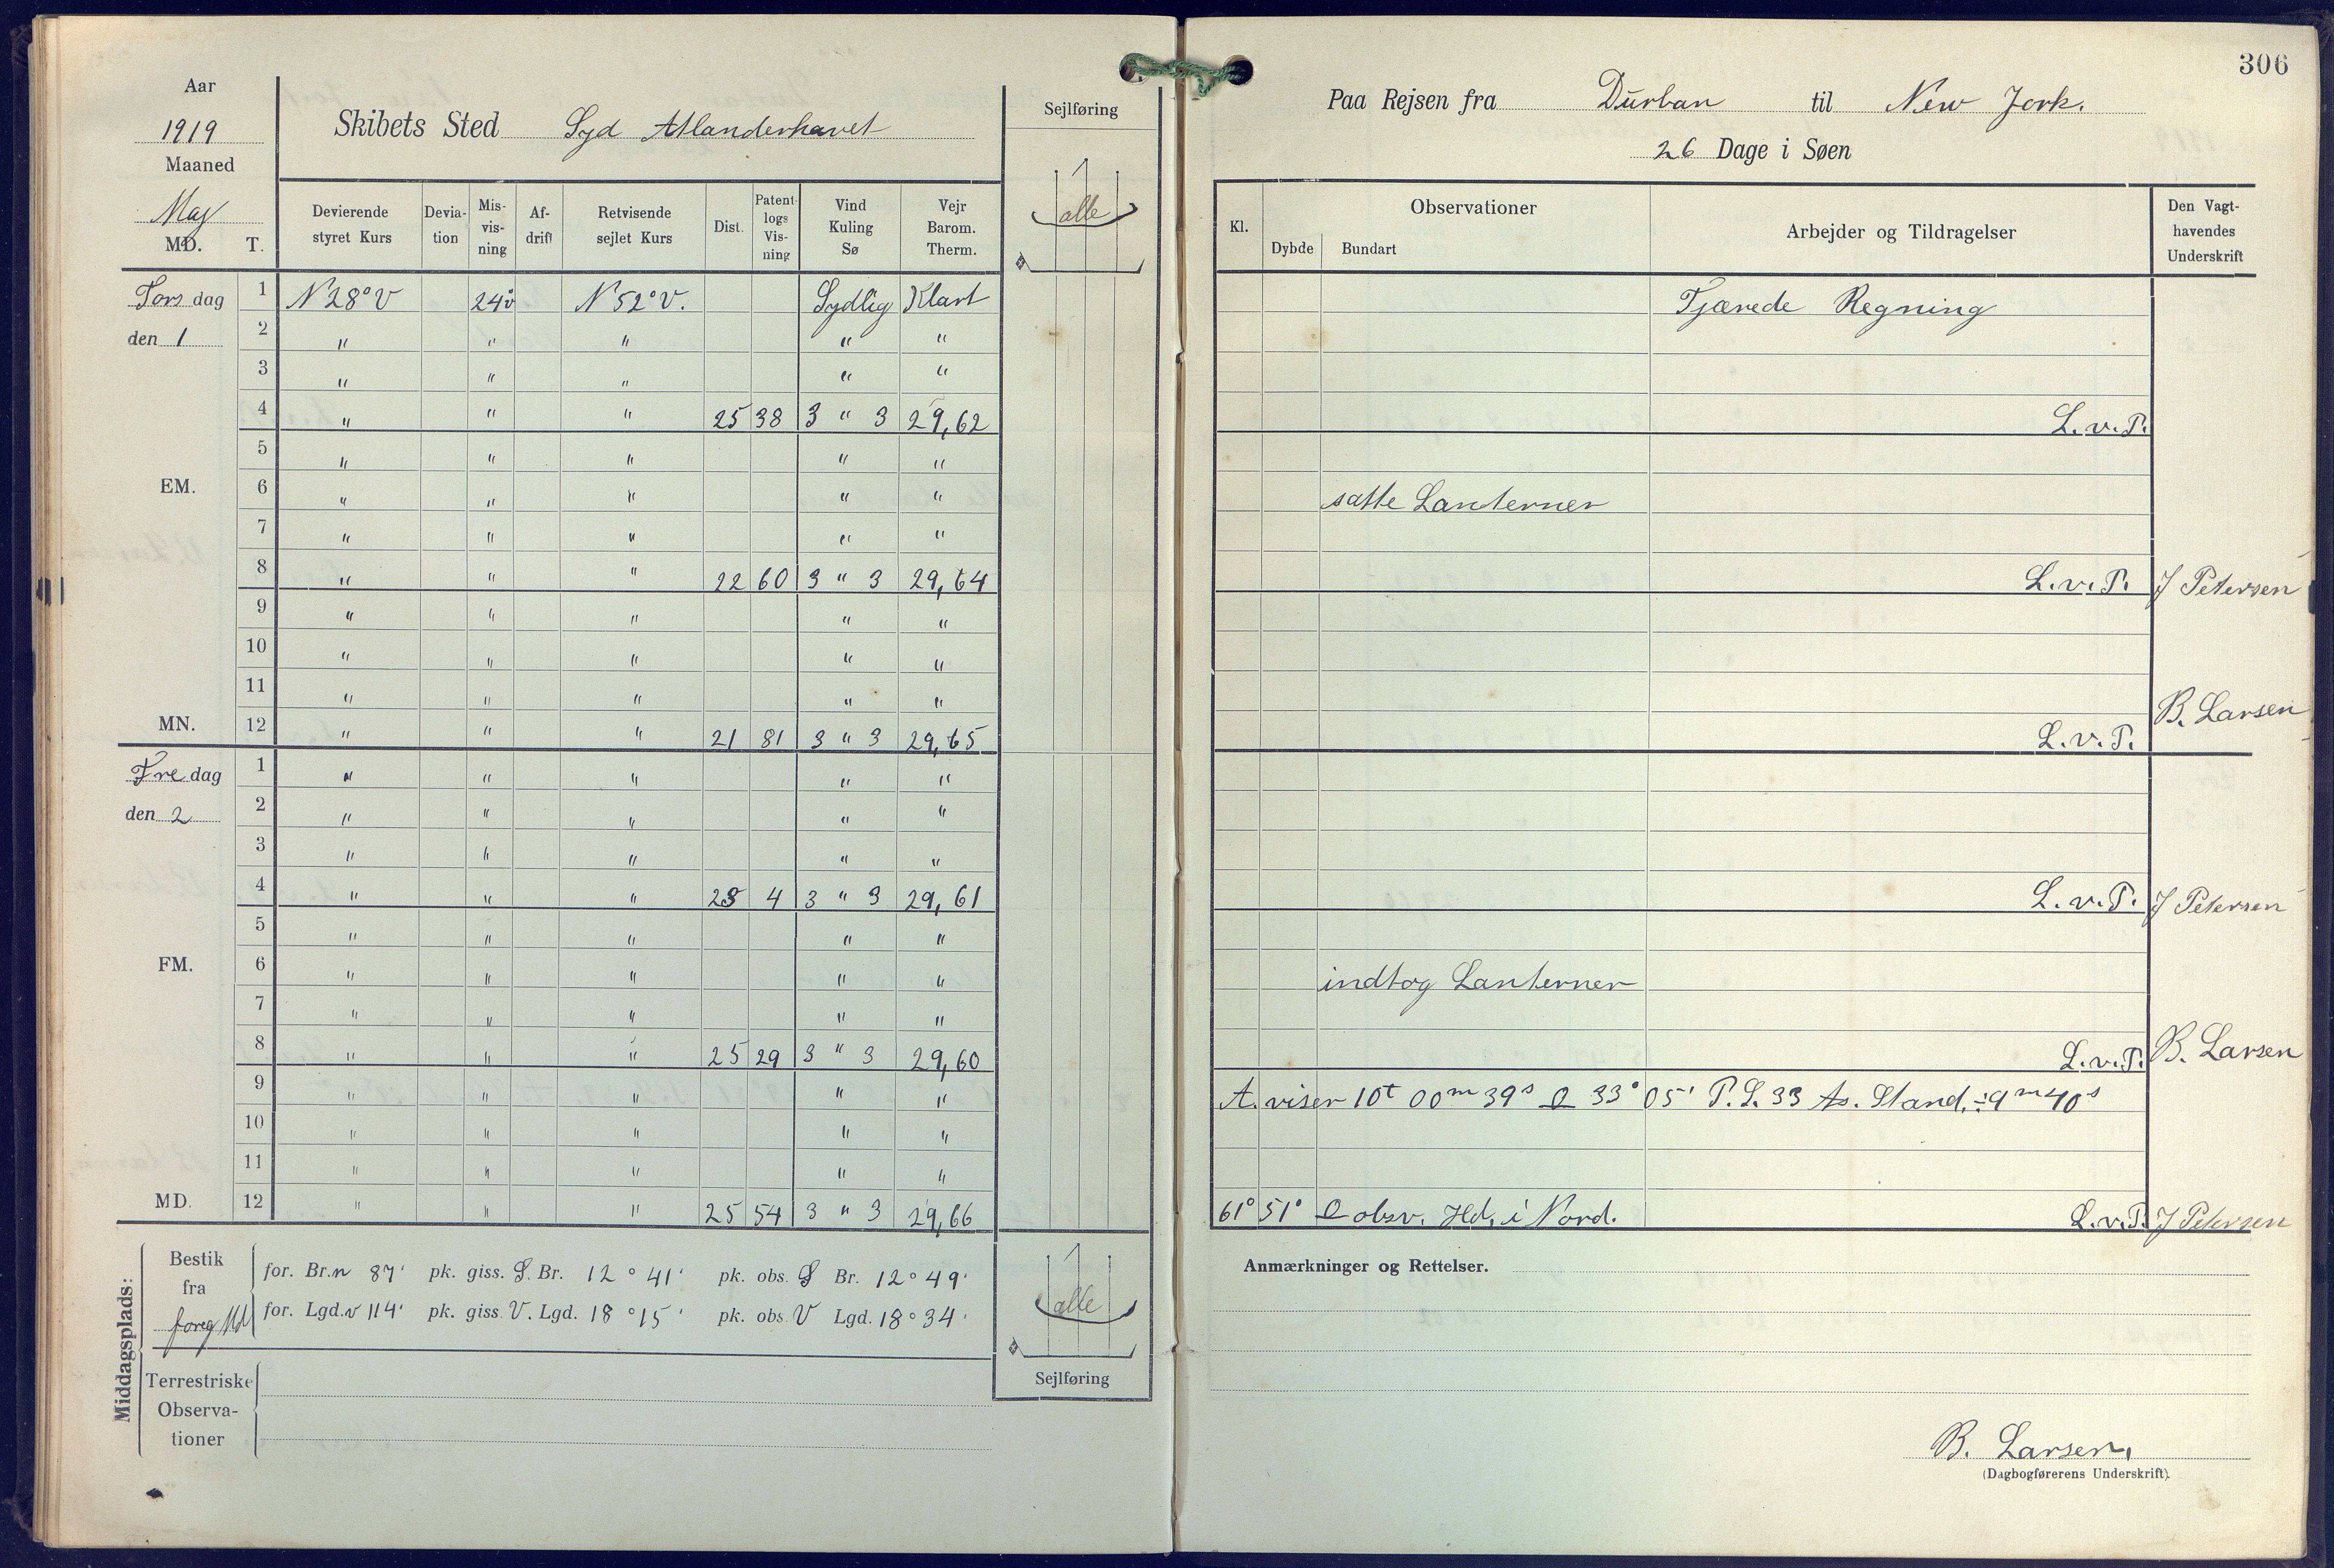 306
Aar
1919
Maaned
Maj
MD. T.
Skibets Sted Syd Atlanderhavet
Sejlføring
alle
Paa Rejsen fra Durban til New Jork.
26 Dage i Søen
Devierende styret Kurs | Devia-tion | Mis-vis-ning | Af-drift | Retvisende sejlet Kurs | Dist. | Patent logs Vis-ning | Vind Kuling Sø | Vejr Barom. Therm.
Kl. | Observationer | Dybde | Bundart | Arbejder og Tildragelser | Den Vagt-havendes Underskrift
Tors dag 1 N 28° V 24° v N 52° V. Sydlig Klart Tjærede Regning
den 1 2 " " " " "
3 " " " " "
4 " " " 25 38 3 " 3 29,62 L.v.P.
5 " " " " "
EM. 6 " " " " " satte Lanterner
7 " " " " "
8 " " " 22 60 3 " 3 29,64 L.v.P. J Petersen
9 " " " " "
10 " " " " "
11 " " " " "
MN. 12 " " " 21 81 3 " 3 29,65 L.v.P. B. Larsen
Fre dag 1 " " " " "
den 2 2 " " " " "
3 " " " " "
4 " " " 23 4 3 " 3 29,61 L.v.P. J Petersen
5 " " " " "
FM. 6 " " " " " indtog Lanterner
7 " " " " "
8 " " " 25 29 3 " 3 29,60 L.v.P. B. Larsen
9 " " " " " A. viser 10t 00m 39s 33° 05' P.L. 33 As. Stand. ÷ 9m 40s
10 " " " " "
11 " " " " "
MD. 12 " " " 25 54 3 " 3 29,66 61° 51° obsv. Hd. i Nord. L.v.P. J Petersen
Middagsplads:
Bestik fra foreg Md
for. Br. n 87' pk. giss. S. Br. 12° 41' pk. obs. S Br. 12° 49'
for. Lgd. v 114' pk. giss. V. Lgd. 18° 15' pk. obs. V Lgd. 18° 34'
Terrestriske
Observa-
tioner
alle
Sejlføring
Anmærkninger og Rettelser.
B. Larsen,
(Dagbogførerens Underskrift).